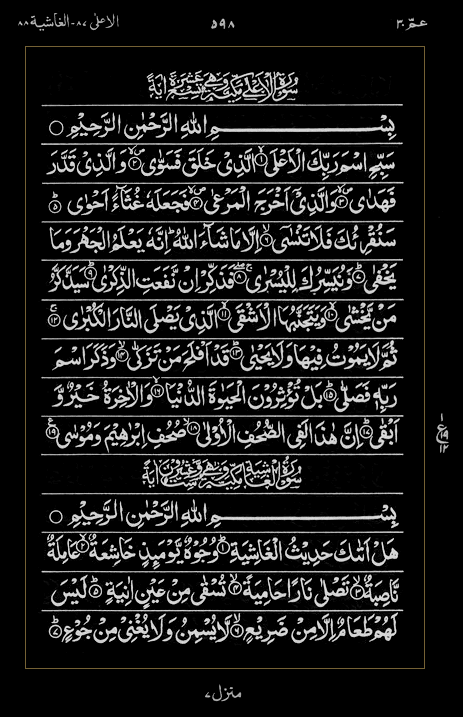 الاعلى ٨٧-الغاشية ٨٨ ٥٩٨ عمّ ٣٠
سُوْرَةُ الْاَعْلٰى مَكِّيَّةٌ وَّهِيَ تِسْعَ عَشَرَةَ اٰيَةً
بِسْــــــــــمِ اللهِ الرَّحْمٰنِ الرَّحِيْمِ ○
سَبِّحِ اسْمَ رَبِّكَ الْاَعْلَى ۙ﴿١﴾ الَّذِيْ خَلَقَ فَسَوّٰى ۪ۙ﴿٢﴾ وَالَّذِيْ قَدَّرَ
فَهَدٰى ۪ۙ﴿٣﴾ وَالَّذِيْٓ اَخْرَجَ الْمَرْعٰى ۪ۙ﴿٤﴾ فَجَعَلَهٗ غُثَآءً اَحْوٰى ؕ﴿٥﴾
سَنُقْرِئُكَ فَلَا تَنْسٰٓى ۙ﴿٦﴾ اِلَّا مَا شَآءَ اللهُ ؕ اِنَّهٗ يَعْلَمُ الْجَهْرَ وَمَا
يَخْفٰى ؕ﴿٧﴾ وَنُيَسِّرُكَ لِلْيُسْرٰى ۚۖ﴿٨﴾ فَذَكِّرْ اِنْ نَّفَعَتِ الذِّكْرٰى ؕ﴿٩﴾ سَيَذَّكَّرُ
مَنْ يَّخْشٰى ۙ﴿١٠﴾ وَيَتَجَنَّبُهَا الْاَشْقَى ۙ﴿١١﴾ الَّذِيْ يَصْلَى النَّارَ الْكُبْرٰى ۚ﴿١٢﴾
ثُمَّ لَا يَمُوْتُ فِيْهَا وَلَا يَحْيٰى ؕ﴿١٣﴾ قَدْ اَفْلَحَ مَنْ تَزَكّٰى ۙ﴿١٤﴾ وَذَكَرَ اسْمَ
رَبِّهٖ فَصَلّٰى ؕ﴿١٥﴾ بَلْ تُؤْثِرُوْنَ الْحَيٰوةَ الدُّنْيَا ۖ﴿١٦﴾ وَالْاٰخِرَةُ خَيْرٌ وَّ
اَبْقٰى ؕ﴿١٧﴾ اِنَّ هٰذَا لَفِي الصُّحُفِ الْاُوْلٰى ۙ﴿١٨﴾ صُحُفِ اِبْرٰهِيْمَ وَمُوْسٰى ﴿١٩﴾
١
ع ١٩
١٢
سُوْرَةُ الْغَاشِيَةِ مَكِّيَّةٌ وَّهِيَ سِتٌّ وَّعِشْرُوْنَ اٰيَةً
بِسْــــــــــمِ اللهِ الرَّحْمٰنِ الرَّحِيْمِ ○
هَلْ اَتٰىكَ حَدِيْثُ الْغَاشِيَةِ ؕ﴿١﴾ وُجُوْهٌ يَّوْمَئِذٍ خَاشِعَةٌ ۙ﴿٢﴾ عَامِلَةٌ
نَّاصِبَةٌ ۙ﴿٣﴾ تَصْلٰى نَارًا حَامِيَةً ۙ﴿٤﴾ تُسْقٰى مِنْ عَيْنٍ اٰنِيَةٍ ؕ﴿٥﴾ لَيْسَ
لَهُمْ طَعَامٌ اِلَّا مِنْ ضَرِيْعٍ ۙ﴿٦﴾ لَّا يُسْمِنُ وَلَا يُغْنِيْ مِنْ جُوْعٍ ؕ﴿٧﴾
منزل ٧